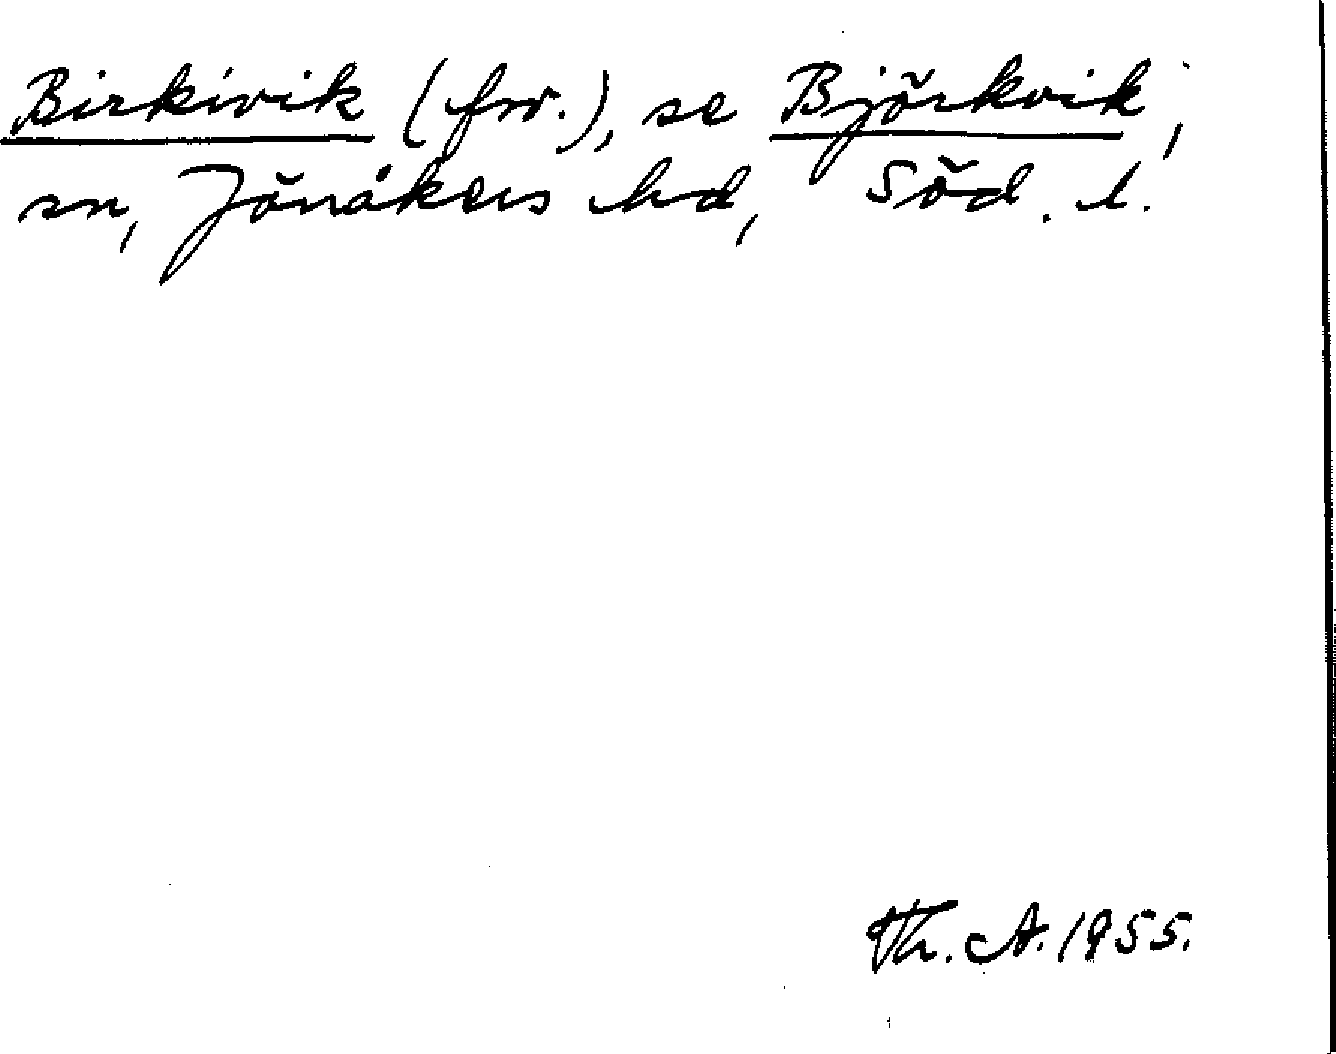 Birkivik (fsv.), se Björkvik,
sn, Jönåkers hd, Söd. l.
Th. A. 1955.